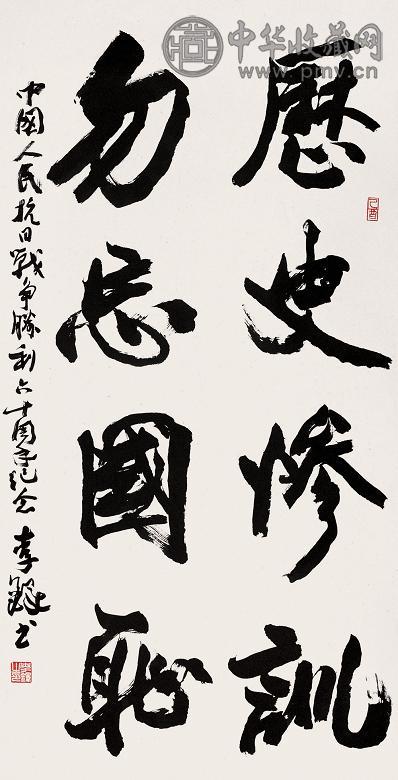 中华收藏网
www.pmv.cn
歷史惨訓
勿忘國恥
中國人民抗日戰争勝利六十周年纪念 李鐸书
乙酉